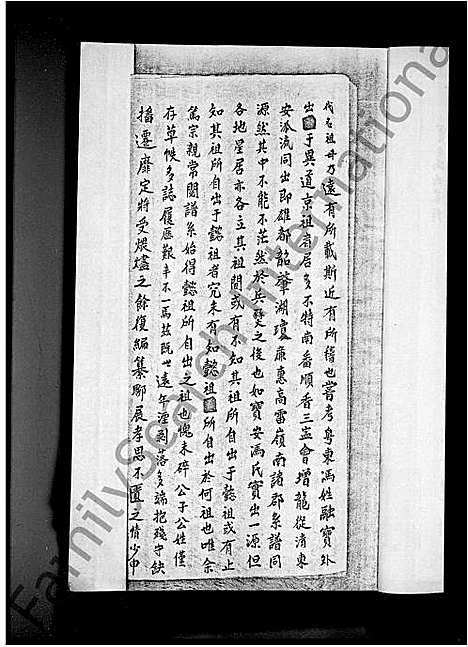 代名祖母乃遠有所載斯近有所稽也嘗考粤東馮姓融寶外
出于異道京祖者居多不特南番順香三盆會增龍從清東
安派流同出即雄都韶肇湖瓊廉惠高雷嶺南諸郡系譜同
源然其中不能不茫然於兵燹之後也如寶安馮氏實出一源但
各地星居亦各立其祖間或有不知其祖所自出于懿祖或有止
知其祖所自出于懿祖者究未有知懿祖所自出於何祖也唯余
篤宗親常閱譜系始得懿祖所自出之祖也愧未碎公子公姓僅
存草帙多誌履歷艱辛不一焉茲既世遠年湮剥落多端抱殘守缺
播遷靡定將受煨燼之餘復編纂聊展孝思不匱之情少申
FamilySearch International